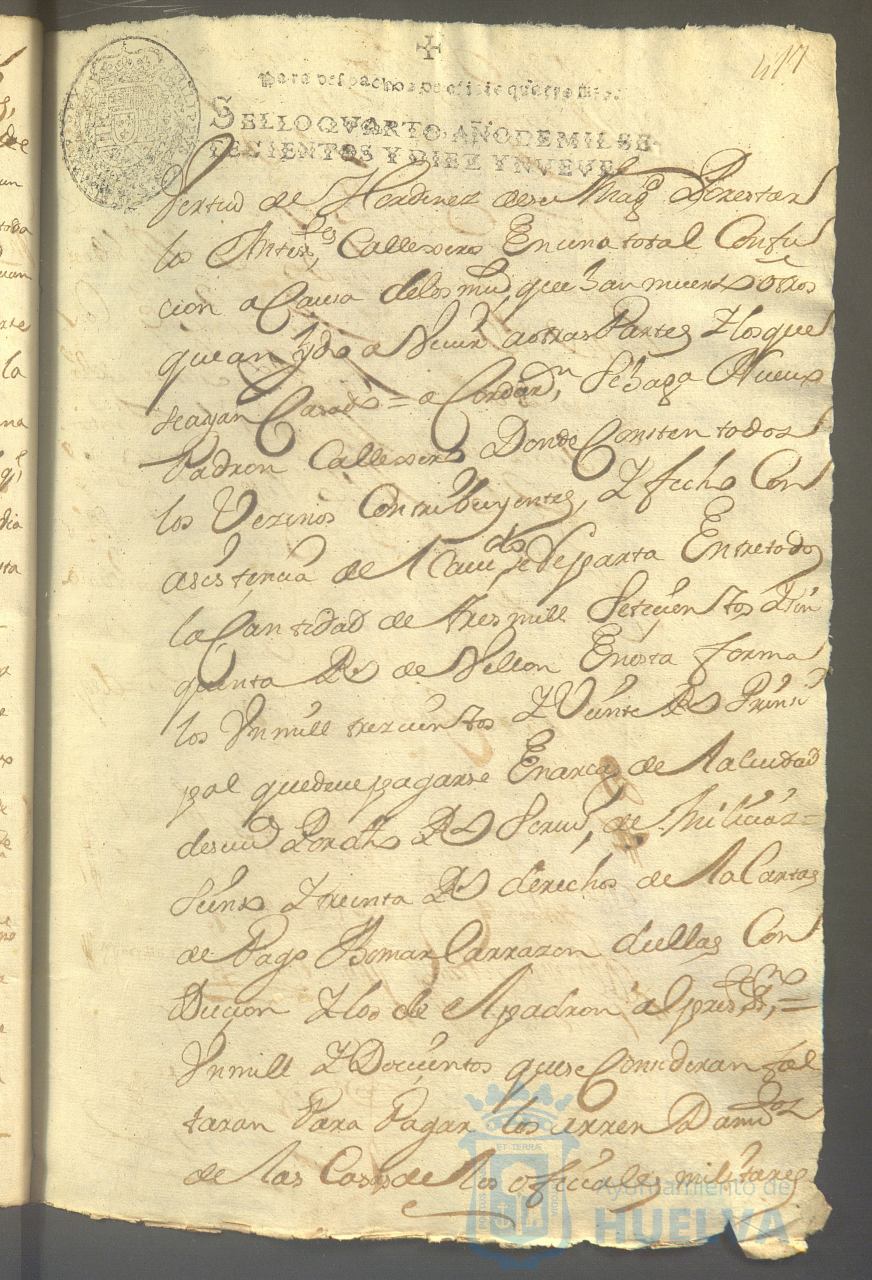 417
para despachos de oficio quatro mrs.
SELLO QVARTO, AÑO DE MIL SE
TECIENTOS Y DIEZ Y NVEVE.
Vertud de Hordenez de su Magd Por estar
los Anteres, Callexero En una total Confu
cion a Causa de los muchos que han muerto otros
que an ydo a Vivir a otras Partes Y los que
se ayan Casado = a Cordaron, Se haga Nuevo
Padron Callexero Donde Consten todos
los Vezinos Contribuyentes, Y fecho Con
asistencia de su se Reparta Entre todos
la Cantidad de tres mill Setecientos Y sin
quenta Rs de Vellon En esta forma
los Un mill trezientos Y Veinte Rs Prinsi
pal que deve pagarse En arcas de la ciudad
de Rs Servi, de Miliciaz =
Siento Y treinta Rs derechos de la Cartas
de Pago tomar la razon de ellas Con
Ducion Y los de el padron al press, =
Un mill Y Docientos que se Consideran fal
taran Para Pagar los arrendamtos
de las Casas de los oficiales militares
ET TERRÆ
Ayuntamiento de
HUELVA